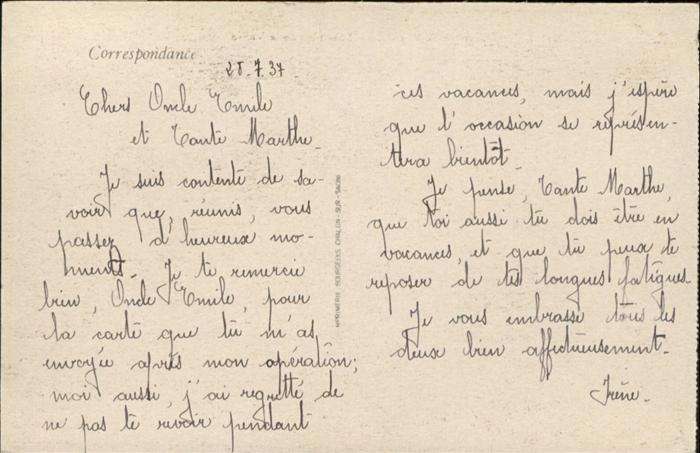 Correspondance
28.7.37
Chers Oncle Emile
et Tante Marthe.
Je suis contente de sa-
voir que, réunis, vous
passez d'heureux mo-
ments. Je te remercie
bien, Oncle Emile, pour
la carte que tu m'as
envoyée après mon opération;
moi aussi, j'ai regretté de
ne pas te revoir pendant
ces vacances, mais j'espère
que l'occasion se représen-
tera bientôt.
Je pense, Tante Marthe,
que toi aussi tu dois être en
vacances, et que tu peux te
reposer de tes longues fatigues.
Je vous embrasse tous les
deux bien affectueusement.
Irène.
IMPRIMERIE BOURGEOIS CHALON-SUR-SAONE